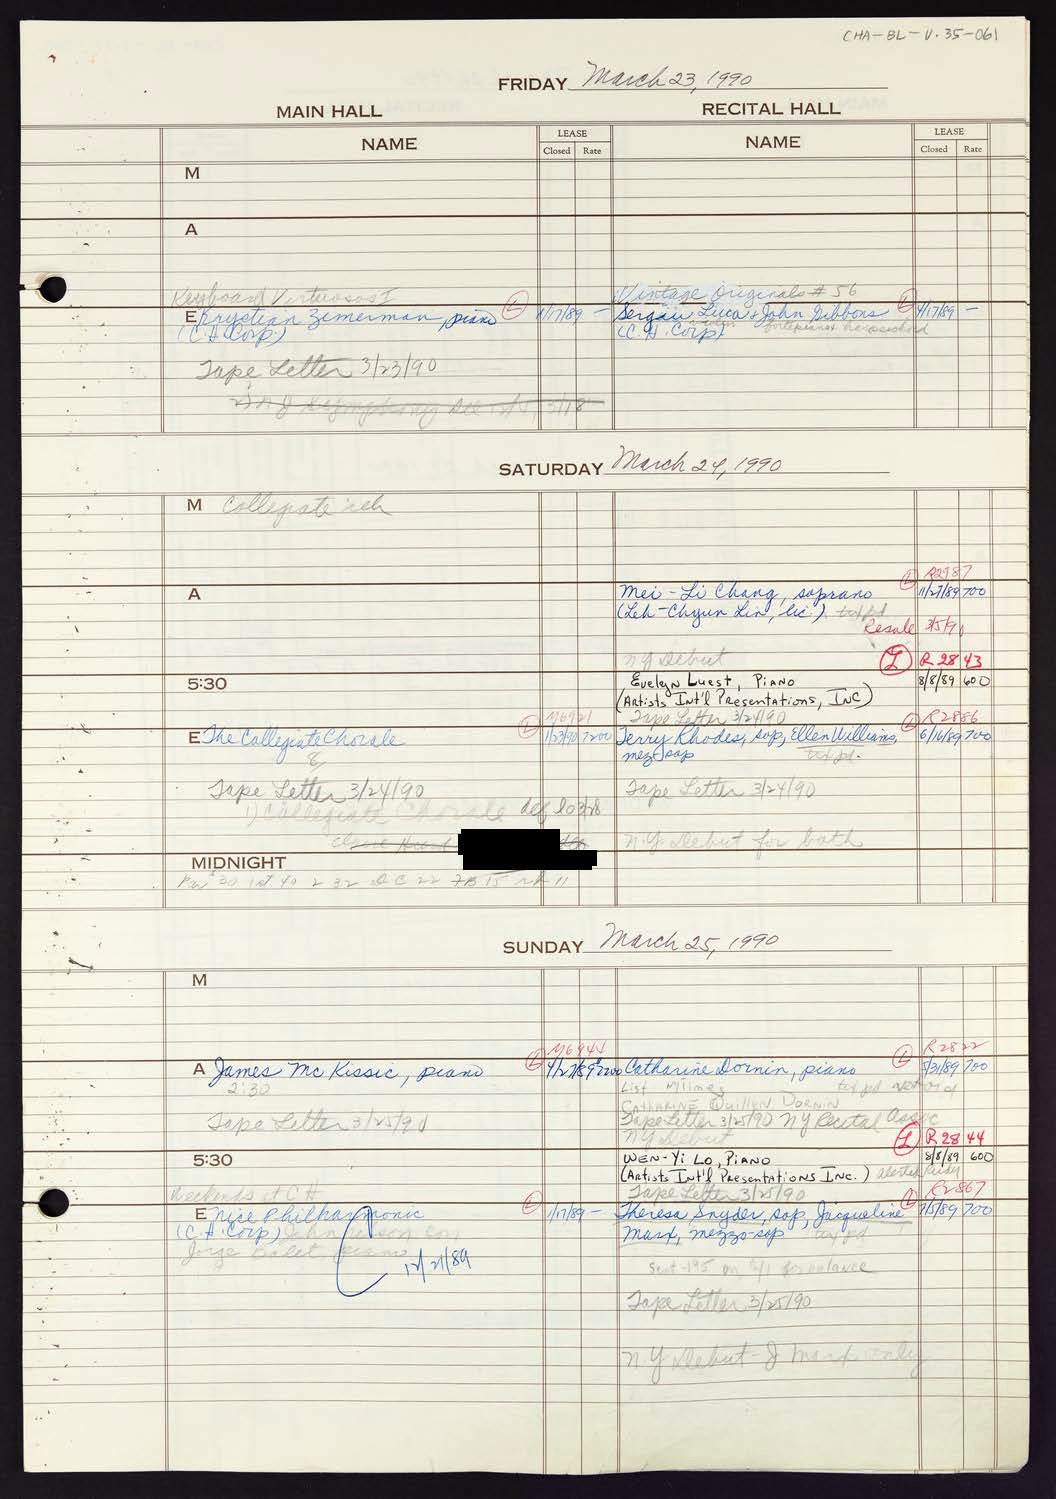 CHA-BL-V.35-061
FRIDAY March 23, 1990
MAIN HALL RECITAL HALL
NAME LEASE NAME LEASE
Closed Rate Closed Rate
M
A
Keyboard Virtuosos I Vintage Originals # 56
E Krystian Zimerman, piano L 1/17/89 – Sergiu Luca + John Gibbons L 4/17/89 –
(C.H. Corp) (C.H. Corp) fortepiano harpsichord
Tape Letter 3/23/90
NJ Symphony 3/18
SATURDAY March 24, 1990
M Collegiate reh
R2987
A Mei-Li Chang, soprano L 11/27/89 700
(Leh-Chyun Lin, lic)
Resale 3/5/90
NY Debut L R 2843
5:30 Evelyn Luest, Piano 8/8/89 600
(Artists Int'l Presentations, Inc)
M6921 Tape Letter 3/24/90 R2886
E The Collegiate Chorale L 1/23/90 7200 Terry Rhodes, sop, Ellen Williams, L 6/16/89 700
8 mez-sop
Tape Letter 3/24/90 Tape Letter 3/24/90
1) Collegiate Chorale 3/28
N.Y. Debut for both
MIDNIGHT
SUNDAY March 25, 1990
M
M6944 R2822
A James McKissic, piano L 4/27/89 2200 Catharine Dornin, piano L 5/31/89 700
2:30 List NTimes
Catharine Quillen Dornin
Tape Letter 3/25/90 Tape Letter 3/25/90 NY Recital Assoc
NY Debut L R 2844
5:30 Wen-Yi Lo, Piano 8/8/89 600
(Artists Int'l Presentations Inc.)
Weekends at C.H. Tape Letter 3/25/90 R2867
E Nice Philharmonic L 1/17/89 – Theresa Snyder, sop, Jacqueline L 7/5/89 700
(C.H. Corp) con Marx, mezzo-sop
Jorge Bolet, piano
12/21/89
for balance
Tape Letter 3/25/90
N.Y. Debut - J Marx only